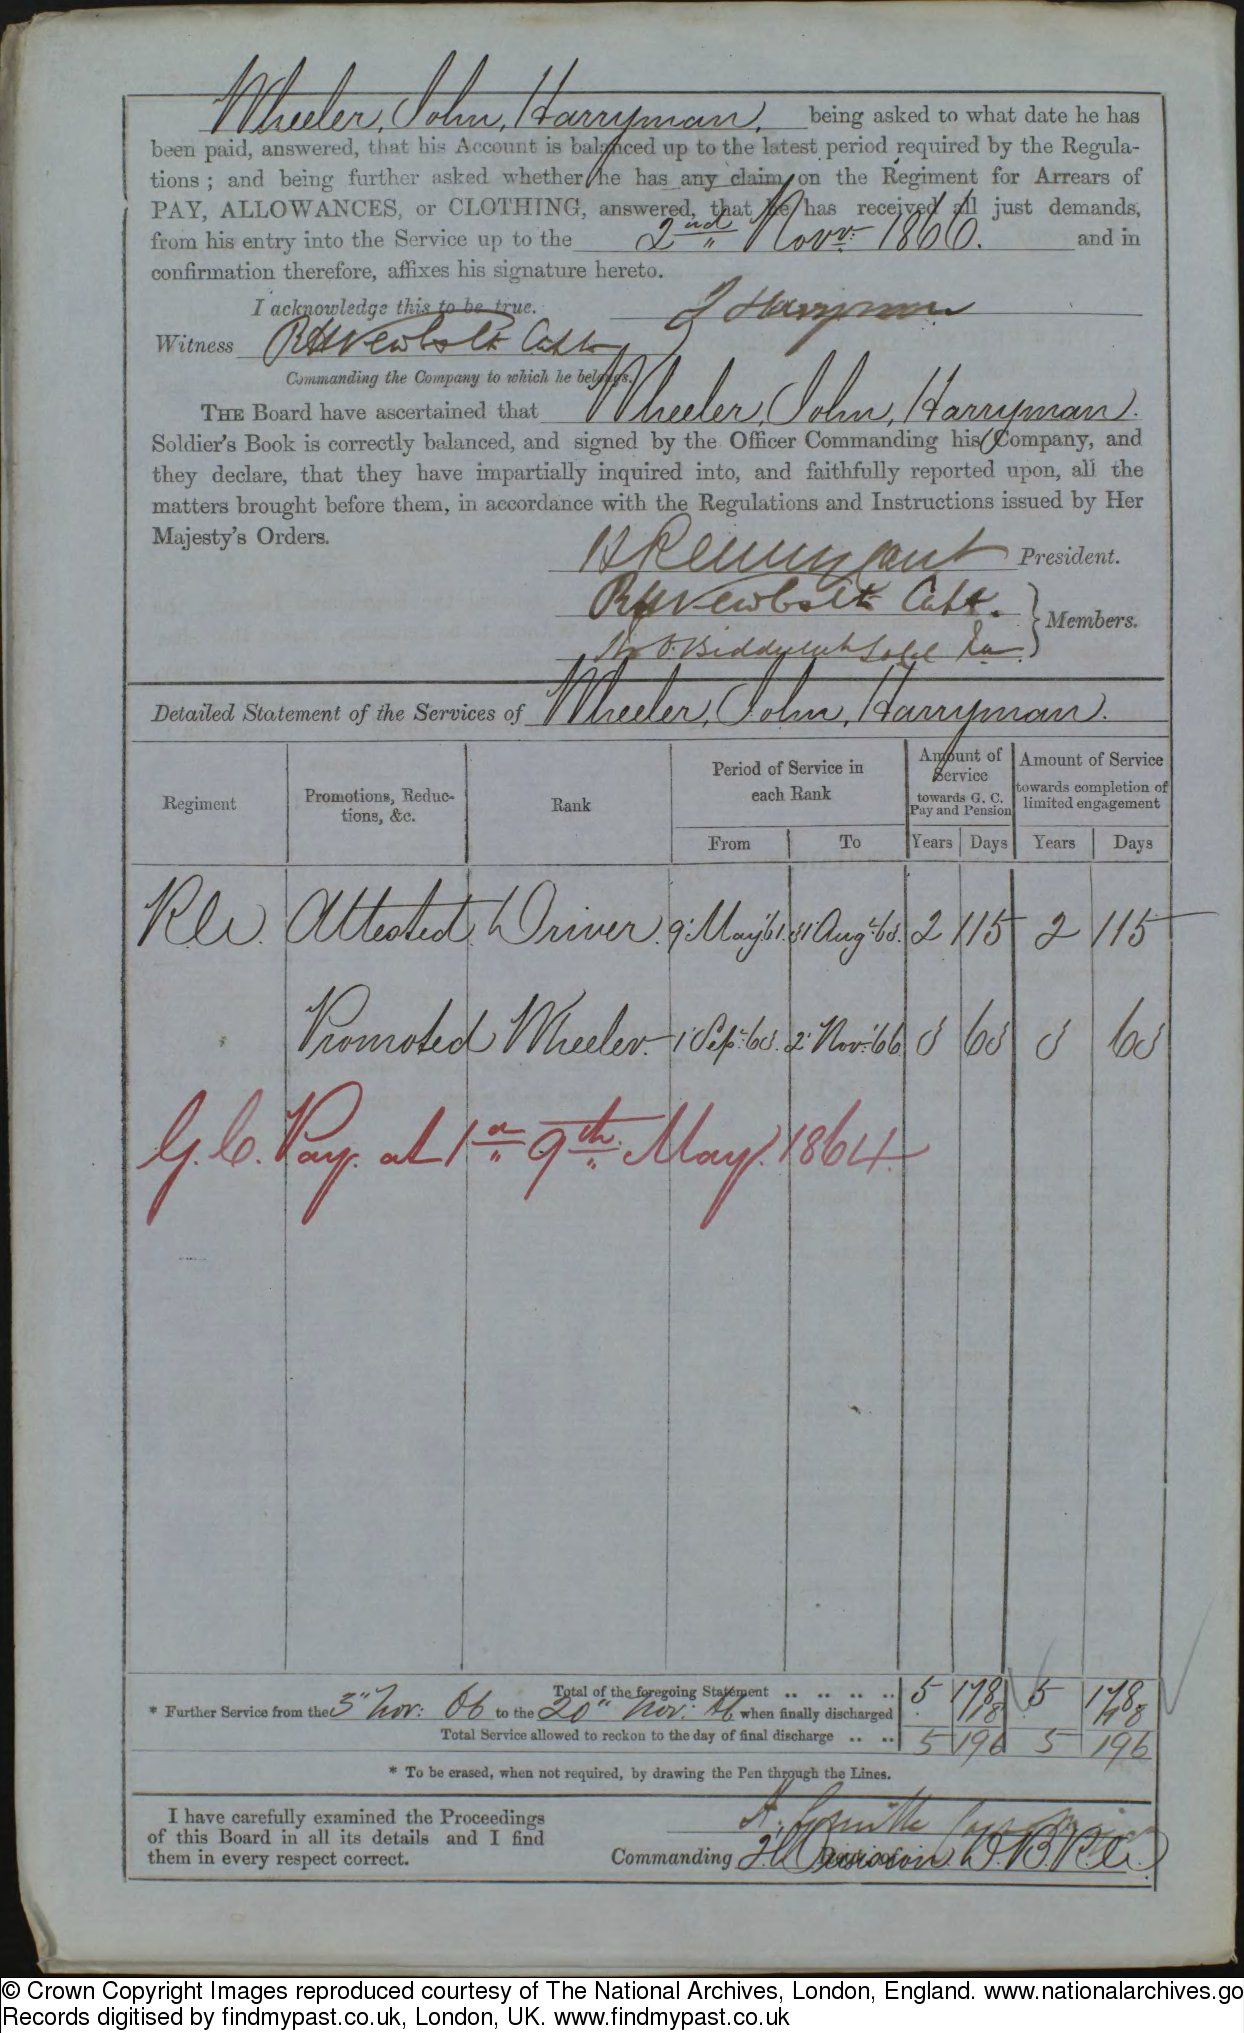 Wheeler, John, Harryman, being asked to what date he has
been paid, answered, that his Account is balanced up to the latest period required by the Regula-
tions ; and being further asked whether he has any claim on the Regiment for Arrears of
PAY, ALLOWANCES, or CLOTHING, answered, that he has received all just demands,
from his entry into the Service up to the 2nd Novr 1866. and in
confirmation therefore, affixes his signature hereto.
I acknowledge this to be true. J Harryman
Witness RHNewbolt Captn
Commanding the Company to which he belongs.
THE Board have ascertained that Wheeler, John, Harryman.
Soldier's Book is correctly balanced, and signed by the Officer Commanding his Company, and
they declare, that they have impartially inquired into, and faithfully reported upon, all the
matters brought before them, in accordance with the Regulations and Instructions issued by Her
Majesty's Orders.
President.
RHNewbolt Captn.
Members.
Biddulph
Detailed Statement of the Services of Wheeler, John, Harryman.
Regiment
Promotions, Reduc-
tions, &c.
Rank
Period of Service in
each Rank
From To
Amount of
Service
towards G. C.
Pay and Pension
Years Days
Amount of Service
towards completion of
limited engagement
Years Days
R.A. Attested Driver. 9 May '61. 31 Augt '63. 2 115 2 115
Promoted Wheeler. 1 Sept '63. 2 Nov '66 3 63 3 63
G. C. Pay. at 1d 9th May. 1864.
Total of the foregoing Statement .. .. .. .. 5 178 5 178
* Further Service from the 3" Nov: 66 to the 20" Nov: 66 when finally discharged 18 18
Total Service allowed to reckon to the day of final discharge .. .. 5 196 5 196
* To be erased, when not required, by drawing the Pen through the Lines.
I have carefully examined the Proceedings
of this Board in all its details and I find
them in every respect correct.
Commanding Division D. B. R.A.
© Crown Copyright Images reproduced courtesy of The National Archives, London, England. www.nationalarchives.go
Records digitised by findmypast.co.uk, London, UK. www.findmypast.co.uk